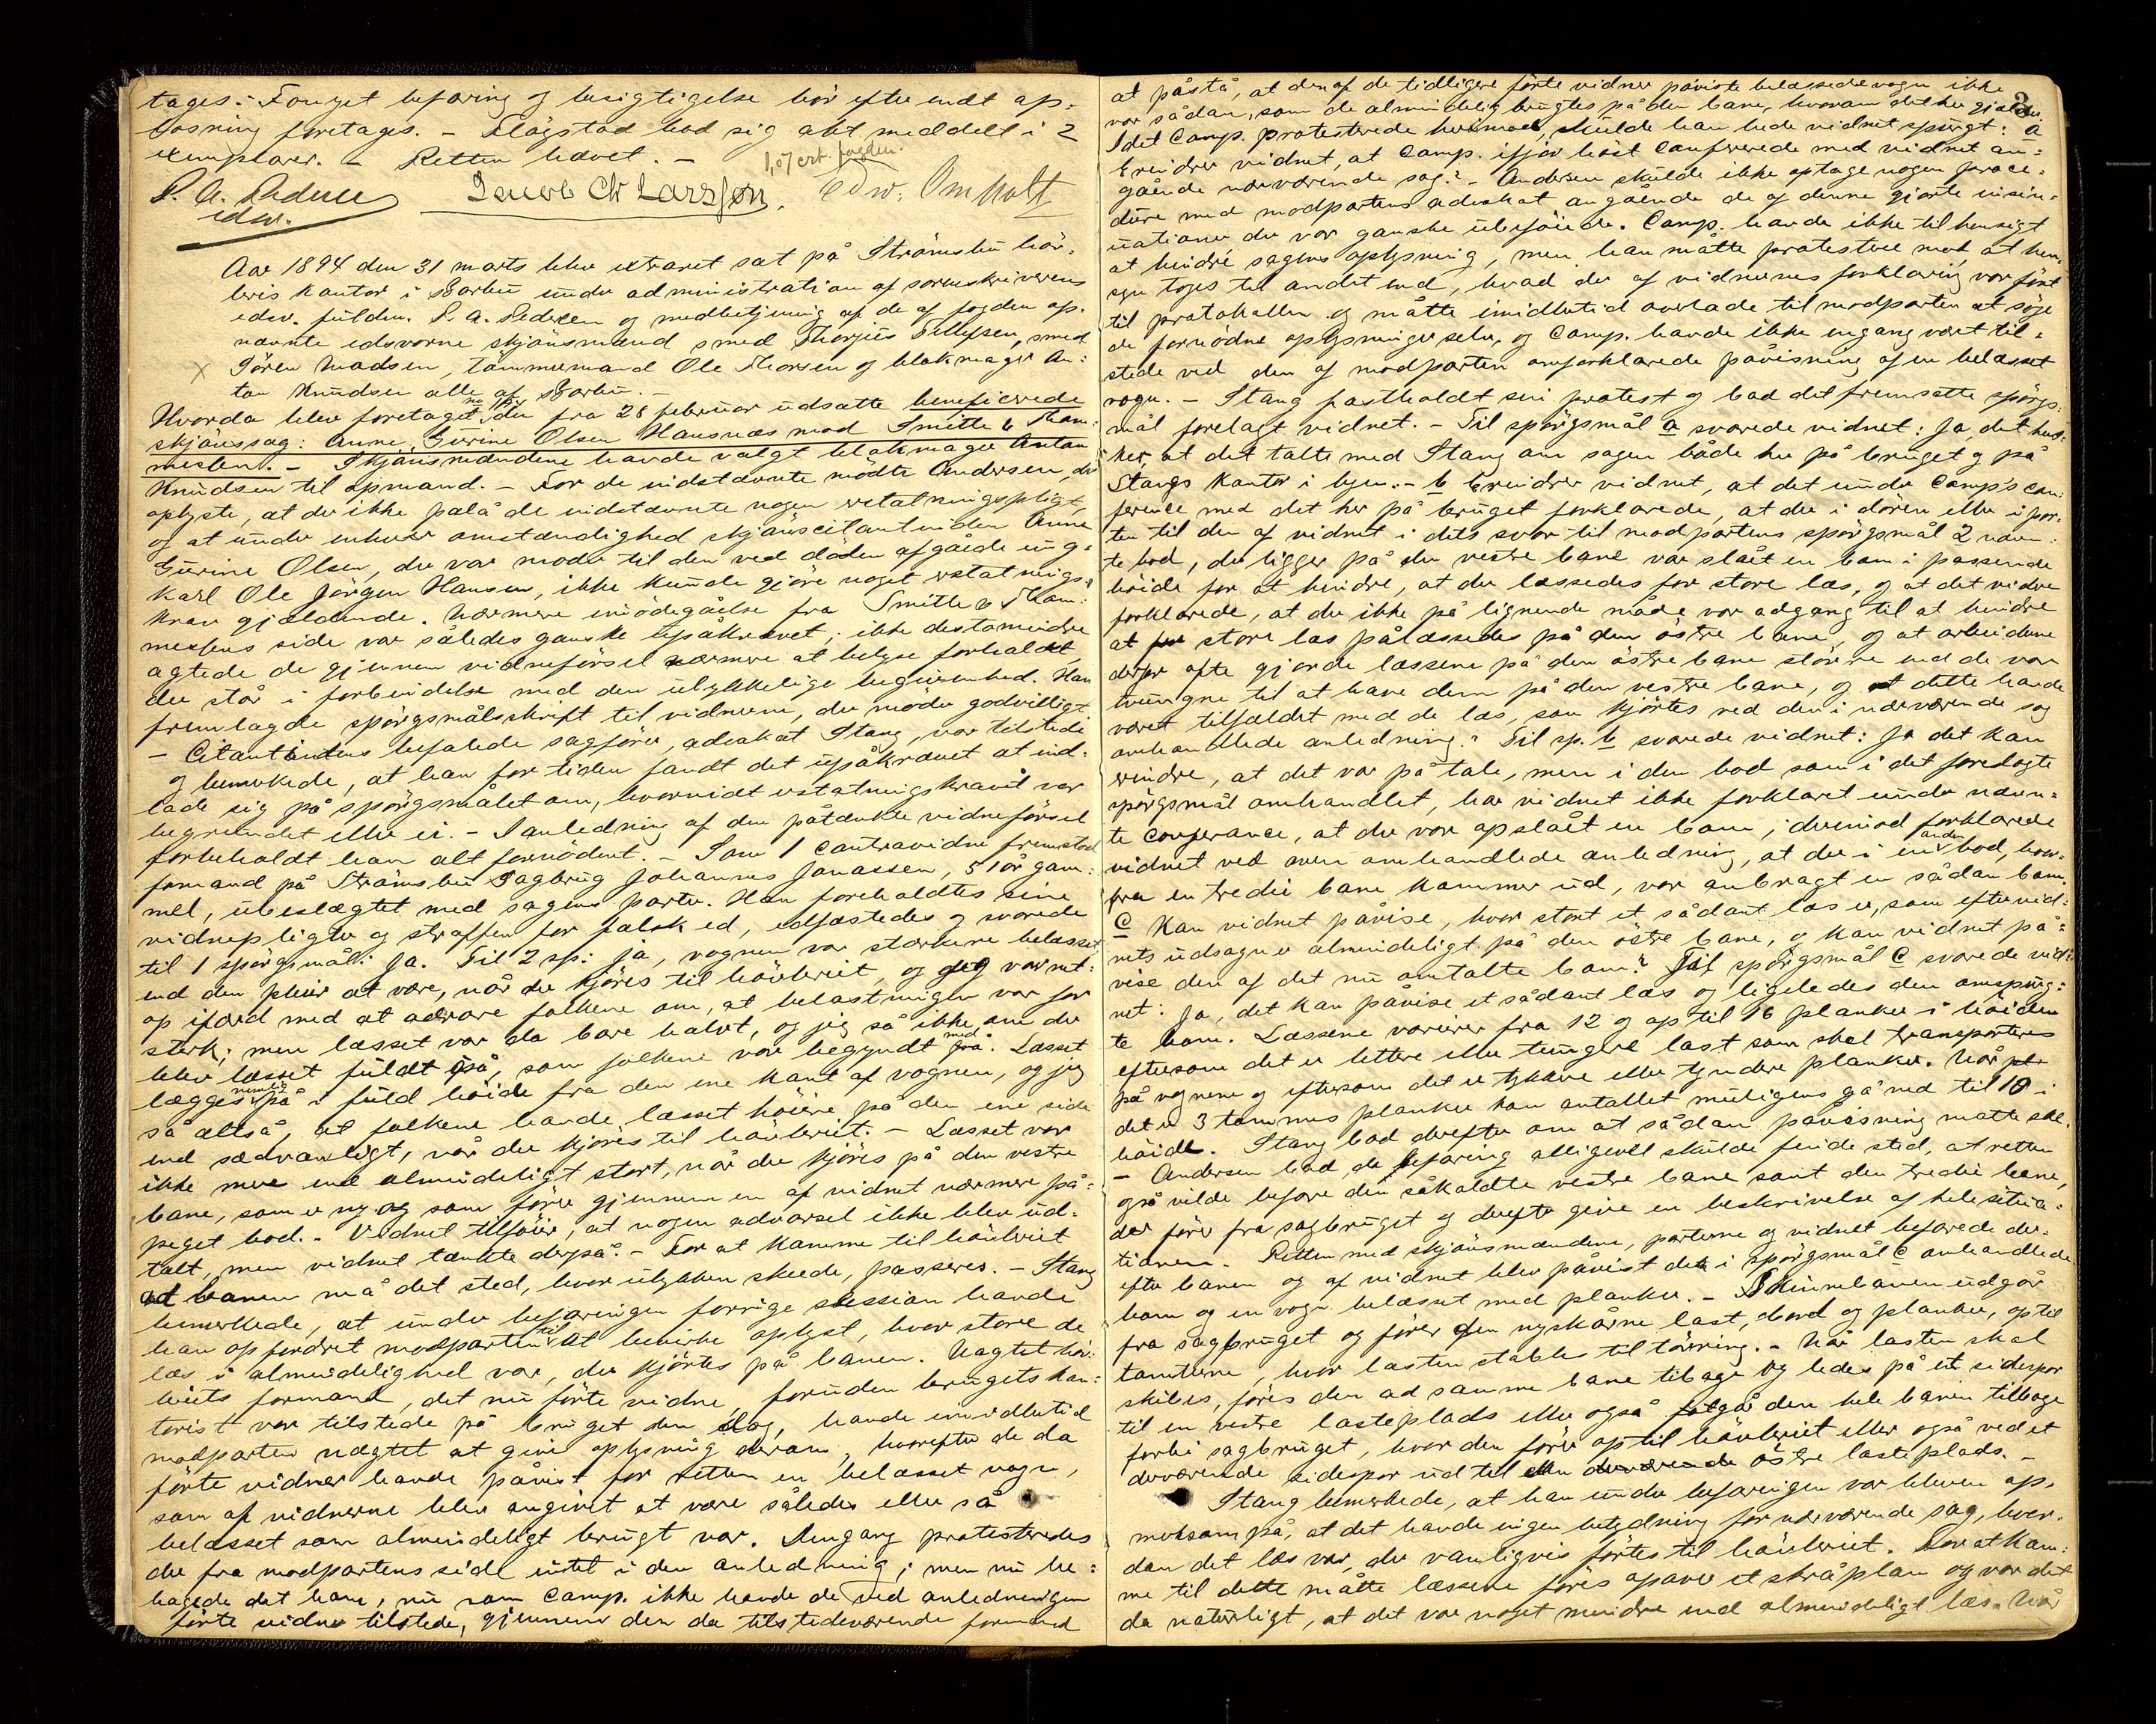 tages. – Fouget befaring og besigtigelse bör efter endt op-
løsning foretages. – Flögstad bad sig akt meddelt i 2
exemplarer. – Retten hævet. –
P. A. Pedersen
edsv.
Jacob Chr Larssen,
Edw. Omholt
Aar 1894 den 31 marts blev extraret sat på Strömsbu höv-
leris kontor i Barbu under administration af sorenskriverens
edsv. fuldm. P. A. Pedersen og medbetjening af de af fogden op-
nævnte edsvorne skjönsmænd smed Thorjus Tellefsen, smed
x Sören Madsen, tömmermand Ole Thorsen og blokmager An-
ton Knudsen alle af Barbu. –
Hvorda blev foretaget den fra 28 februar udsatte beneficerede
skjönssag: Anne Gurine Olsen Hansnæs mod Smith & Thom-
mesen. – Skjönsmændene havde valgt blokmager Anton
Knudsen til opmand. – For de indstævnte mödte Andersen, der
oplyste, at der ikke pålå de indstævnte nogen erstatningspligt,
og at under enhver omstændighed skjönscitantinden Anne
Gurine Olsen, der var moder til den ved döden afgåede ung-
karl Ole Jörgen Hansen, ikke kunde gjöre noget erstatnings-
krav gjældende. Nærmere imödegåelse fra Smith & Thom-
mesens side var således ganske upåkrævet; ikke destomindre
agtede de gjennem vidneförsel nærmere at belyse forholdet
der står i forbindelse med den ulykkelige begivenhed. Han
fremlagde spörgsmålsskrift til vidnerne, der möder godvilligt
– Citantindens befalede sagförer, advokat Stang, var tilstede
og bemærkede, at han for tiden fandt det upåkrævet at ind-
lade sig på spörgsmålet om, hvorvidt erstatningskravet var
begrundet eller ei. – I anledning af den påtænkte vidneförsel
forbeholdt han alt fornödent. – Som 1 contravidne fremstod
formand på Strömsbu Sagbrug Johannes Jonassen, 51 år gam-
mel, ubeslægtet med sagens parter. Han foreholdtes sine
vidnepligter og straffen for falsk ed, edfæstedes og svarede
til 1 spörgsmål: Ja. Til 2 sp: ja, vognen var stærkere belæsset
end den pleier at være, når der kjöres til hövleriet, og jeg var net-
op ifærd med at advare folkene om, at belastningen var for
sterk; men læsset var da bare halvt, og jeg så ikke om der
blev læsset fuldt på, som folkene var begyndt med på. Læsset
lægges nemlig på i fuld höide fra den ene kant af vognen, og jeg
så altså, at folkene havde læsset höiere på den ene side
end sædvanligt, når der kjöres til hövleriet. – Læsset var
ikke mere end almindeligt stort, når der kjöres på den vestre
bane, som er ny og som förer gjennem en af vidnet nærmere på-
peget bod. – Vidnet tilföier, at nogen advarsel ikke blev ud-
talt, men vidnet tænkte derpå. – For at komme til hövleriet
ad banen må det sted, hvor ulykken skeede, passeres. – Stang
bemærkede, at under befaringen forrige session havde
han opfordret modparten til at bevirke oplyst, hvor store de
læs i almindelighed var, der kjörtes på banen. Uagtet höv-
leriets formand, det nu förte vidne, foruden brugets kon-
torist var tilstede på bruget den dag, havde imidlertid
modparten nægtet at give oplysning derom, hvorefter de da
förte vidner havde påvist for retten en belæsset vogn,
som af vidnerne blev angivet at være således eller så
belæsset som almindeligt brugt var. Dengang protesteredes
der fra modpartens side intet i den anledning; men nu be-
hagede det ham, nu som Camp. ikke havde de ved anledningen
förte vidner tilstede, gjennem den da tilstedeværende formand
at påstå, at den af de tidligere förte vidner påviste belæssede vogn ikke
var sådan, som de almindelig brugtes på den bane, hvorom det her gjælder.
Idet Camp. protesterede herimod, skulde han bede vidnet spurgt: a
Erindrer vidnet, at Camp. ifjor höst confererede med vidnet an-
gående nærværende sag? – Andersen skulde ikke optage nogen proce-
dure med modpartens advokat angående de af denne gjorte insin-
uationer der var ganske ubeföiede. Camp. havde ikke til hensigt
at hindre sagens oplysning, men han måtte protestere mod, at hen-
syn toges til andet end, hvad der af vidnernes forklaring var fört
til protokollen og måtte imidlertid overlade til modparten at söge
de fornödne oplysninger selv, og Camp. havde ikke engang været til-
stede ved den af modparten omforklarede påvisning af en belæsset
vogn. – Stang fastholdt sin protest og bad det fremsatte spörgs-
mål forelagt vidnet. – Til spörgsmål a svarede vidnet: Ja, det hus-
ker, at det talte med Stang om sagen både her på bruget og på
Stangs kontor i byen. – b Erindrer vidnet, at det under Camp's con-
ference med det her på bruget forklarede, at der i dören eller i por-
ten til den af vidnet i dets svar til modpartens spörgsmål 2 nævn-
te bod, der ligger på den vestre bane var slået en bom i passende
höide for at hindre, at der læssedes for store læs, og at det videre
forklarede, at der ikke på lignende måde var adgang til at hindre
at for store læs pålæssedes på den östre bane, og at arbeiderne
derfor ofte gjorde læssene på den östre bane större end de var
tvungne til at have dem på den vestre bane, og at dette havde
været tilfældet med de læs, som kjörtes ved den i nærværende sag
omhandlede anledning? Til sp. b svarede vidnet: Ja det kan
erindre, at det var på tale, men i den bod som i det forelagte
spörgsmål omhandlet, har vidnet ikke forklaret under nævn-
te conferance, at der var opslået en bom; derimod forklarede
vidnet ved oven omhandlede anledning, at der i en anden bod, hvor-
fra en tredie bane kommer ud, var anbragt en sådan bom.
c Kan vidnet påvise, hvor stort et sådant læs er, som efter vid-
nets udsagn er almindeligt på den östre bane, og kan vidnet på-
vise den af det nu omtalte bom? Til spörgsmål c svarede vid-
net: Ja, det kan påvise et sådant læs og ligeledes den omspurg-
te bom. Læssene varierer fra 12 og op til 16 planker i höiden
eftersom det er lettere eller tungere last som skal transporteres
på vognene og eftersom det er tykkere eller tyndere planker. Når
det er 3 tommers planker kan antallet muligens gå ned til 10 i
höide. Stang bad derefter om at sådan påvisning måtte ske.
– Andersen bad, da befaring alligevel skulde finde sted, at retten
også vilde befare den såkaldte vestre bane samt den tredie bane,
der förer fra sagbruget og derefter give en beskrivelse af hele situa-
tionen. Retten med skjönsmændene, parterne og vidnet befarede der-
efter banen og af vidnet blev påvist den i spörgsmål c omhandlede
bom og en vogn belæsset med planker. – Skinnebanen udgår
fra sagbruget og förer den nyskårne last, bord og planker, op til
tomterne, hvor lasten stables til törring. – Når lasten skal
skibes, föres den ad samme bane tilbage og ledes på et sidespor
til en vestre lasteplads eller også følger den hele banen tilbage
forbi sagbruget, hvor den förer op til hövleriet eller også ved et
derværende sidespor ud til den östre lasteplads. –
Stang bemærkede, at han under befaringen var bleven op-
merksom på, at det havde ingen betydning for nærværende sag, hvor-
dan det læs var, der vanligvis förtes til hövleriet. For at kom-
me til dette måtte læssene föres opover et skråplan og var det
da naturligt, at det var noget mindre end almindeligt læs. Når